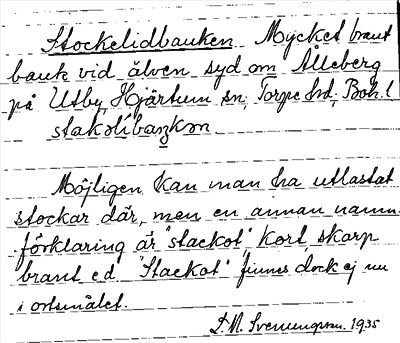 Stockelidbauken Mycket brant
bank vid älven syd om Ålleberg
på Utby, Hjärtum sn, Torpe hd, Boh.l
stakolibaŋkən
Möjligen kan man ha utlastat
stockar där, men en annan namn-
förklaring är "stackot" kort, skarp
brant ed "Stackot" finnes dock ej nu
i ortsmålet.
Svenungson. 1935